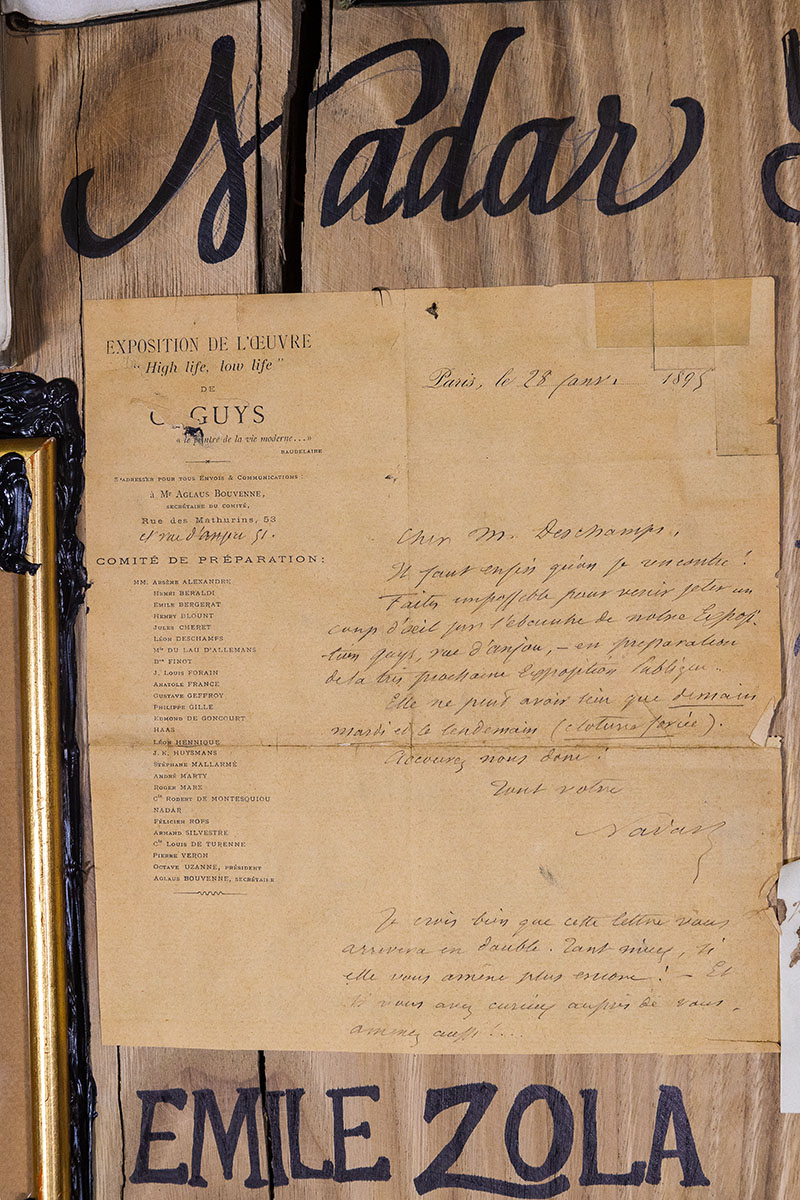 Nadar
EXPOSITION DE L'ŒUVRE
"High life, low life"
DE
C. GUYS
« le peintre de la vie moderne... »
BAUDELAIRE
S'ADRESSER POUR TOUS ENVOIS & COMMUNICATIONS :
à Mr AGLAUS BOUVENNE,
SECRÉTAIRE DU COMITÉ,
Rue des Mathurins, 53
et rue d'anjou 51.
COMITÉ DE PRÉPARATION:
MM. ARSÈNE ALEXANDRE
HENRI BERALDI
EMILE BERGERAT
HENRY BLOUNT
JULES CHERET
LÉON DESCHAMPS
Mis DU LAU D'ALLEMANS
Dr FINOT
J. LOUIS FORAIN
ANATOLE FRANCE
GUSTAVE GEFFROY
PHILIPPE GILLE
EDMOND DE GONCOURT
HAAS
LÉON HENNIQUE
J. K. HUYSMANS
STÉPHANE MALLARMÉ
ANDRÉ MARTY
ROGER MARX
Cte ROBERT DE MONTESQUIOU
NADAR
FÉLICIEN ROPS
ARMAND SILVESTRE
Cte LOUIS DE TURENNE
PIERRE VERON
OCTAVE UZANNE, PRÉSIDENT
AGLAUS BOUVENNE, SECRÉTAIRE
Paris, le 28 janv. 1895
Cher M. Deschamps,
Il faut enfin qu'on se rencontre !
Faites impossible pour venir jeter un
coup d'œil sur l'ébauche de notre Exposi-
tion Guys, rue d'anjou, – en préparation
de la très prochaine Exposition Publique.
Elle ne peut avoir lieu que demain
mardi et le lendemain (cloture forcée).
Accourez nous donc !
Tout votre
Nadar
Je crois bien que cette lettre vous
arrivera en double. Tant mieux, si
elle vous amène plus encore ! – Et
si vous avez curieux auprès de vous,
amenez aussi !...
EMILE ZOLA